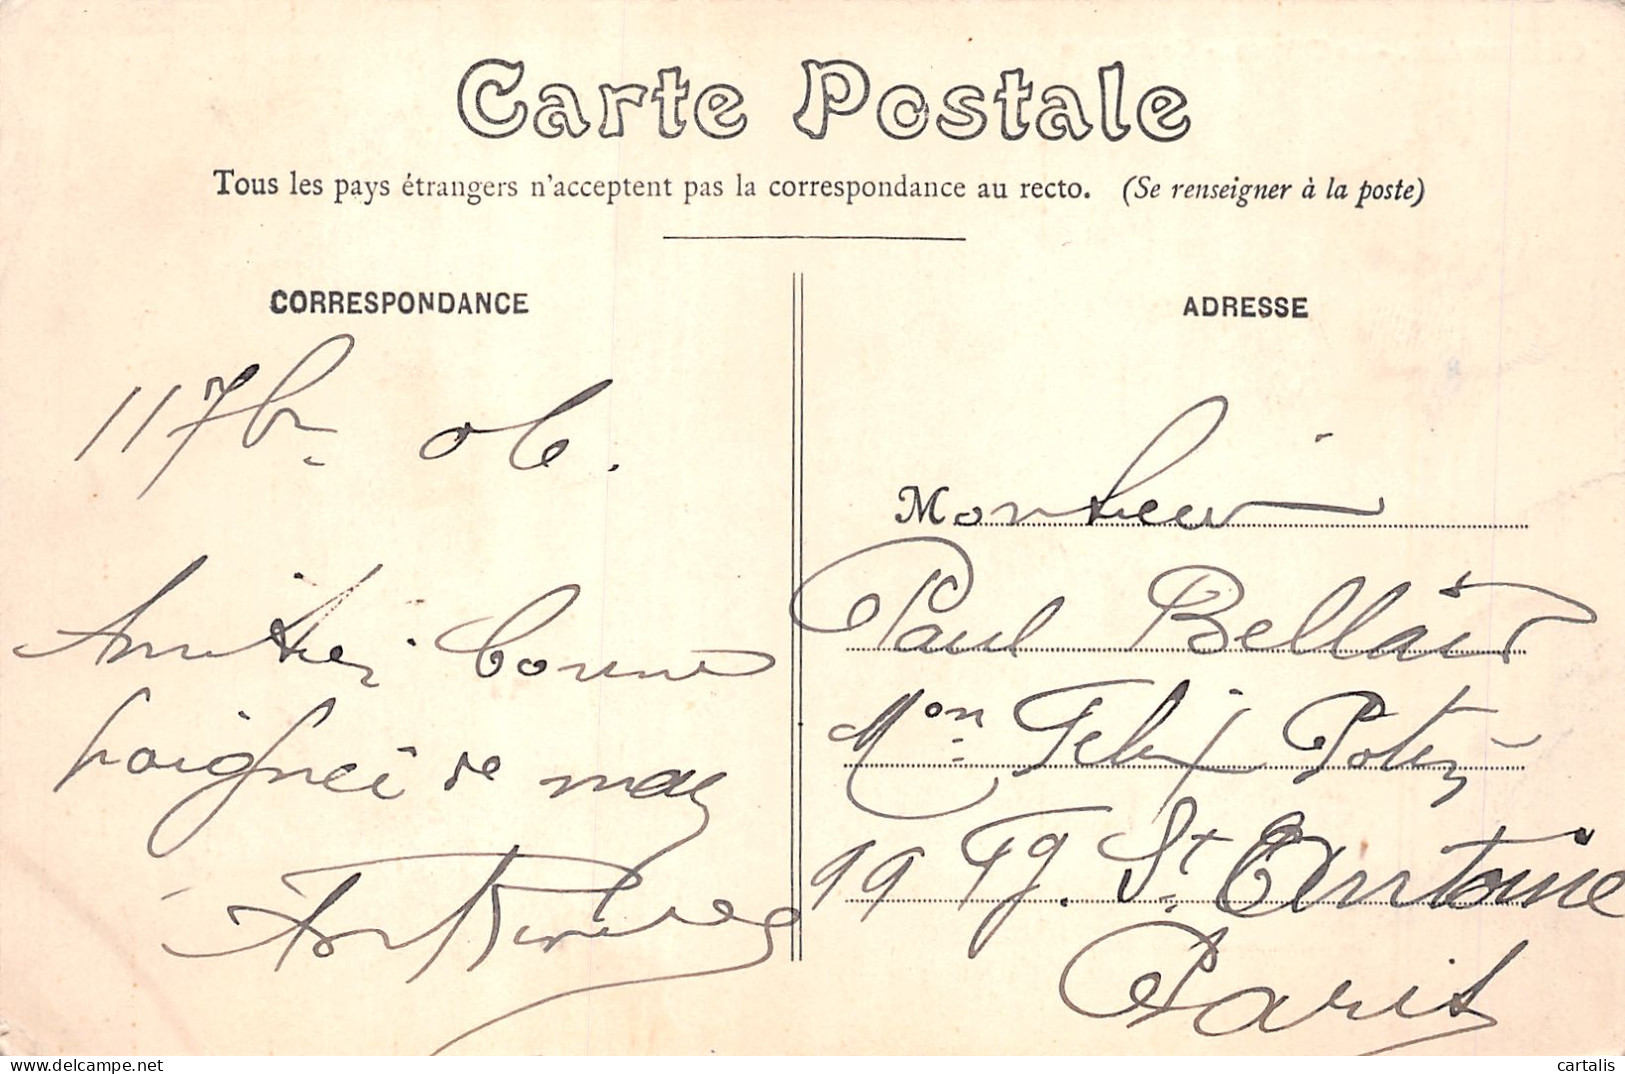 Carte Postale
Tous les pays étrangers n'acceptent pas la correspondance au recto. (Se renseigner à la poste)
CORRESPONDANCE
11 7bre 06.
Amitiés. bonne
poignée de main
ADRESSE
Monsieur
Paul Bellair
Mon Felix Potin
99 Fg. St. Antoine
Paris
cartalis